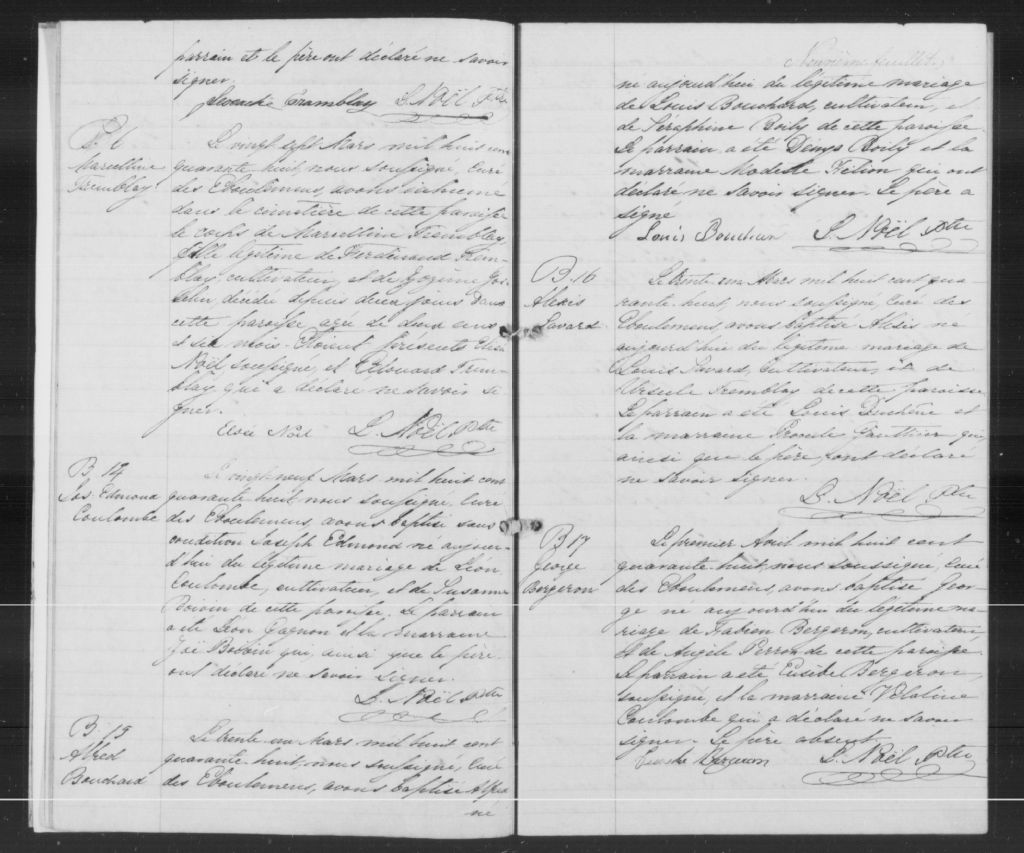 parrain et le père ont déclaré ne savoir
signer.
Tremblay L. Noël Ptre
Marcelline
Tremblay
Le vingt sept Mars mil huit cent
quarante huit, nous soussigné, curé
des Eboulemens, avons inhumé
dans le cimetière de cette paroisse
le corps de Marcelline Tremblay
fille légitime de Ferdinand Trem-
blay, cultivateur, et de Gos-
selin, décédée depuis deux jours dans
cette paroisse agée de deux ans
et six mois. Etoient présents Elisée
Noël soussigné, et Edouard Trem-
blay qui a déclaré ne savoir si-
gner.
Elisée Noël L. Noël Ptre
B. 14
Jos. Edmond
Coulombe
Le vingt neuf Mars mil huit cent
quarante huit, nous soussigné, Curé
des Eboulemens, avons baptisé sous
condition Joseph Edmond né aujour-
d'hui du légitime mariage de Léon
Coulombe, cultivateur, et de Susanne
Boivin de cette paroisse. Le parrain
a été Léon Gagnon et la marraine
Boivin qui, ainsi que le père
ont déclaré ne savoir signer.
L. Noël Ptre
B. 15
Alfred
Bouchard
Le trente un Mars mil huit cent
quarante huit, nous soussigné, Curé
des Eboulemens, avons baptisé Alfred
né
Neuvième feuillet
né aujourd'hui du légitime mariage
de Louis Bouchard, cultivateur, et
de Séraphine Boily de cette paroisse.
Le parrain a été Denys Boily et la
marraine Modeste qui ont
déclaré ne savoir signer. Le père a
signé
Louis L. Noël Ptre
B. 16
Alexis
Savard
Le trente un Mars mil huit cent qua-
rante huit, nous soussigné, Curé des
Eboulemens, avons baptisé Alexis né
aujourd'hui du légitime mariage de
Louis Savard, Cultivateur, et de
Ursule Tremblay de cette paroisse.
Le parrain a été Louis Duchêne et
la marraine Gauthier qui
ainsi que le père, ont déclaré
ne savoir signer.
L. Noël Ptre
B 17
George
Bergeron
Le premier Avril mil huit cent
quarante huit, nous soussigné, Curé
des Eboulemens, avons baptisé Geor-
ge né aujourd'hui du légitime ma-
riage de Fabien Bergeron, cultivateur,
et de Angèle Perron de cette paroisse.
Le parrain a été Eusèbe Bergeron,
soussigné, et la marraine
Coulombe qui a déclaré ne savoir
signer. Le père absent.
Bergeron L. Noël Ptre